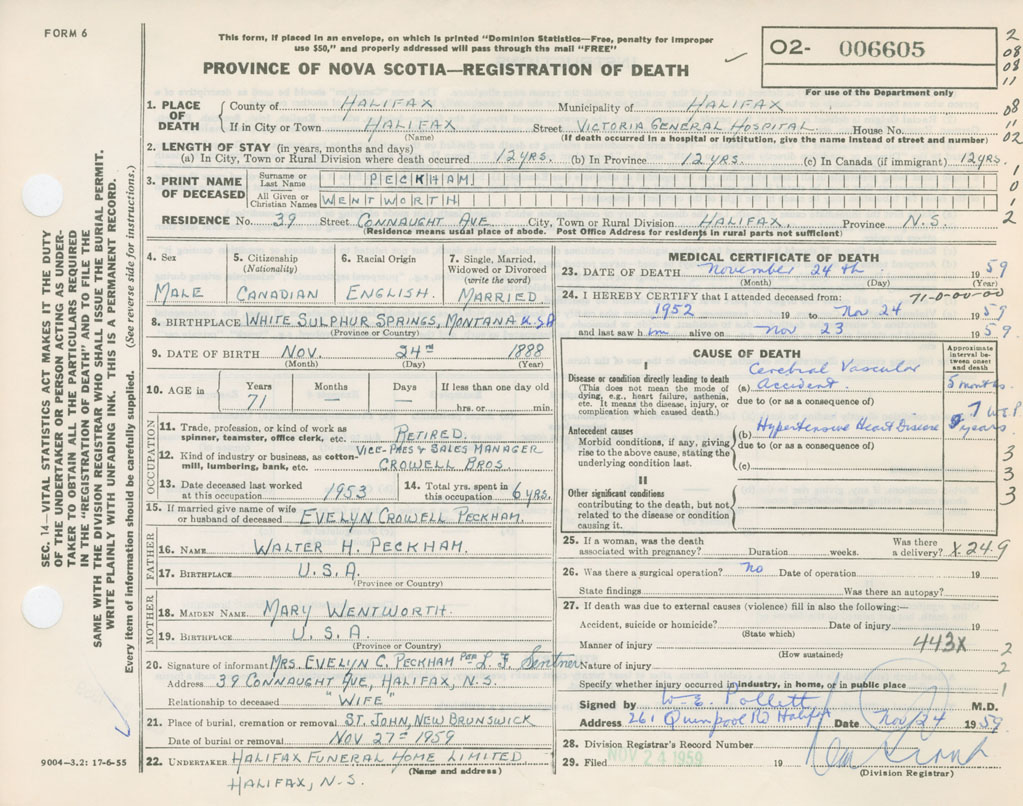 FORM 6
This form, if placed in an envelope, on which is printed "Dominion Statistics—Free, penalty for improper
use $50," and properly addressed will pass through the mail "FREE"
PROVINCE OF NOVA SCOTIA—REGISTRATION OF DEATH
02- 006605
For use of the Department only
2
08
08
11
08
11
02
1
0
1
0
2
SEC. 14—VITAL STATISTICS ACT MAKES IT THE DUTY
OF THE UNDERTAKER OR PERSON ACTING AS UNDER-
TAKER TO OBTAIN ALL THE PARTICULARS REQUIRED
IN THE "REGISTRATION OF DEATH" AND TO FILE THE
SAME WITH THE DIVISION REGISTRAR WHO SHALL ISSUE THE BURIAL PERMIT.
WRITE PLAINLY WITH UNFADING INK. THIS IS A PERMANENT RECORD.
Every item of information should be carefully supplied. (See reverse side for instructions.)
1. PLACE OF DEATH County of HALIFAX Municipality of HALIFAX
If in City or Town HALIFAX Street VICTORIA GENERAL HOSPITAL House No.
(Name) (If death occurred in a hospital or institution, give the name instead of street and number)
2. LENGTH OF STAY (in years, months and days)
(a) In City, Town or Rural Division where death occurred 12 YRS. (b) In Province 12 YRS. (c) In Canada (if immigrant) 12 YRS.
3. PRINT NAME OF DECEASED Surname or Last Name PECKHAM
All Given or Christian Names WENTWORTH
RESIDENCE No. 39 Street CONNAUGHT AVE City, Town or Rural Division HALIFAX Province N.S.
(Residence means usual place of abode. Post Office Address for residents in rural parts not sufficient)
4. Sex
MALE
5. Citizenship
(Nationality)
CANADIAN
6. Racial Origin
ENGLISH.
7. Single, Married,
Widowed or Divorced
(write the word)
MARRIED
8. BIRTHPLACE WHITE SULPHUR SPRINGS, MONTANA U.S.A
(Province or Country)
9. DATE OF BIRTH NOV. 24TH 1888
(Month) (Day) (Year)
10. AGE in Years Months Days If less than one day old
71 — — hrs. or min.
OCCUPATION
11. Trade, profession, or kind of work as
spinner, teamster, office clerk, etc. RETIRED.
12. Kind of industry or business, as cotton-
mill, lumbering, bank, etc. VICE-PRES & SALES MANAGER
CROWELL BROS.
13. Date deceased last worked
at this occupation 1953
14. Total yrs. spent in
this occupation 6 YRS.
15. If married give name of wife
or husband of deceased EVELYN CROWELL PECKHAM.
FATHER
16. NAME WALTER H. PECKHAM.
17. BIRTHPLACE U.S.A.
(Province or Country)
MOTHER
18. MAIDEN NAME MARY WENTWORTH.
19. BIRTHPLACE U.S.A.
(Province or Country)
20. Signature of informant MRS. EVELYN C. PECKHAM PER L. F. Sentner
Address 39 CONNAUGHT AVE, HALIFAX, N.S.
Relationship to deceased "WIFE"
21. Place of burial, cremation or removal ST. JOHN, NEW BRUNSWICK
Date of burial or removal NOV 27TH 1959
22. UNDERTAKER HALIFAX FUNERAL HOME LIMITED
(Name and address)
HALIFAX, N.S.
9004-3.2: 17-6-55
MEDICAL CERTIFICATE OF DEATH
23. DATE OF DEATH November 24 th 1959
(Month) (Day) (Year)
24. I HEREBY CERTIFY that I attended deceased from: 71-0-00-00
1952 19 to Nov 24 1959
and last saw him alive on Nov 23 1959.
CAUSE OF DEATH
Approximate
interval be-
tween onset
and death
I
Disease or condition directly leading to death
(This does not mean the mode of
dying, e.g., heart failure, asthenia,
etc. It means the disease, injury, or
complication which caused death.)
(a) Cerebral Vascular
Accident
5 months
due to (or as a consequence of)
Antecedent causes
Morbid conditions, if any, giving
rise to the above cause, stating the
underlying condition last.
(b) Hypertensive Heart Disease 7 years
due to (or as a consequence of)
(c)
3
3
3
II
Other significant conditions
contributing to the death, but not
related to the disease or condition
causing it.
25. If a woman, was the death
associated with pregnancy? Duration weeks. Was there
a delivery? X.24.9
26. Was there a surgical operation? no Date of operation 19
State findings Was there an autopsy?
27. If death was due to external causes (violence) fill in also the following:—
Accident, suicide or homicide? Date of injury 19
(State which)
Manner of injury 443X
(How sustained)
2
Nature of injury 2
Specify whether injury occurred in industry, in home, or in public place 1
Signed by W. E. Pollett M.D.
Address 261 Quinpool Rd Halifax Date Nov 24 1959
28. Division Registrar's Record Number
29. Filed NOV 24 1959 19
(Division Registrar)